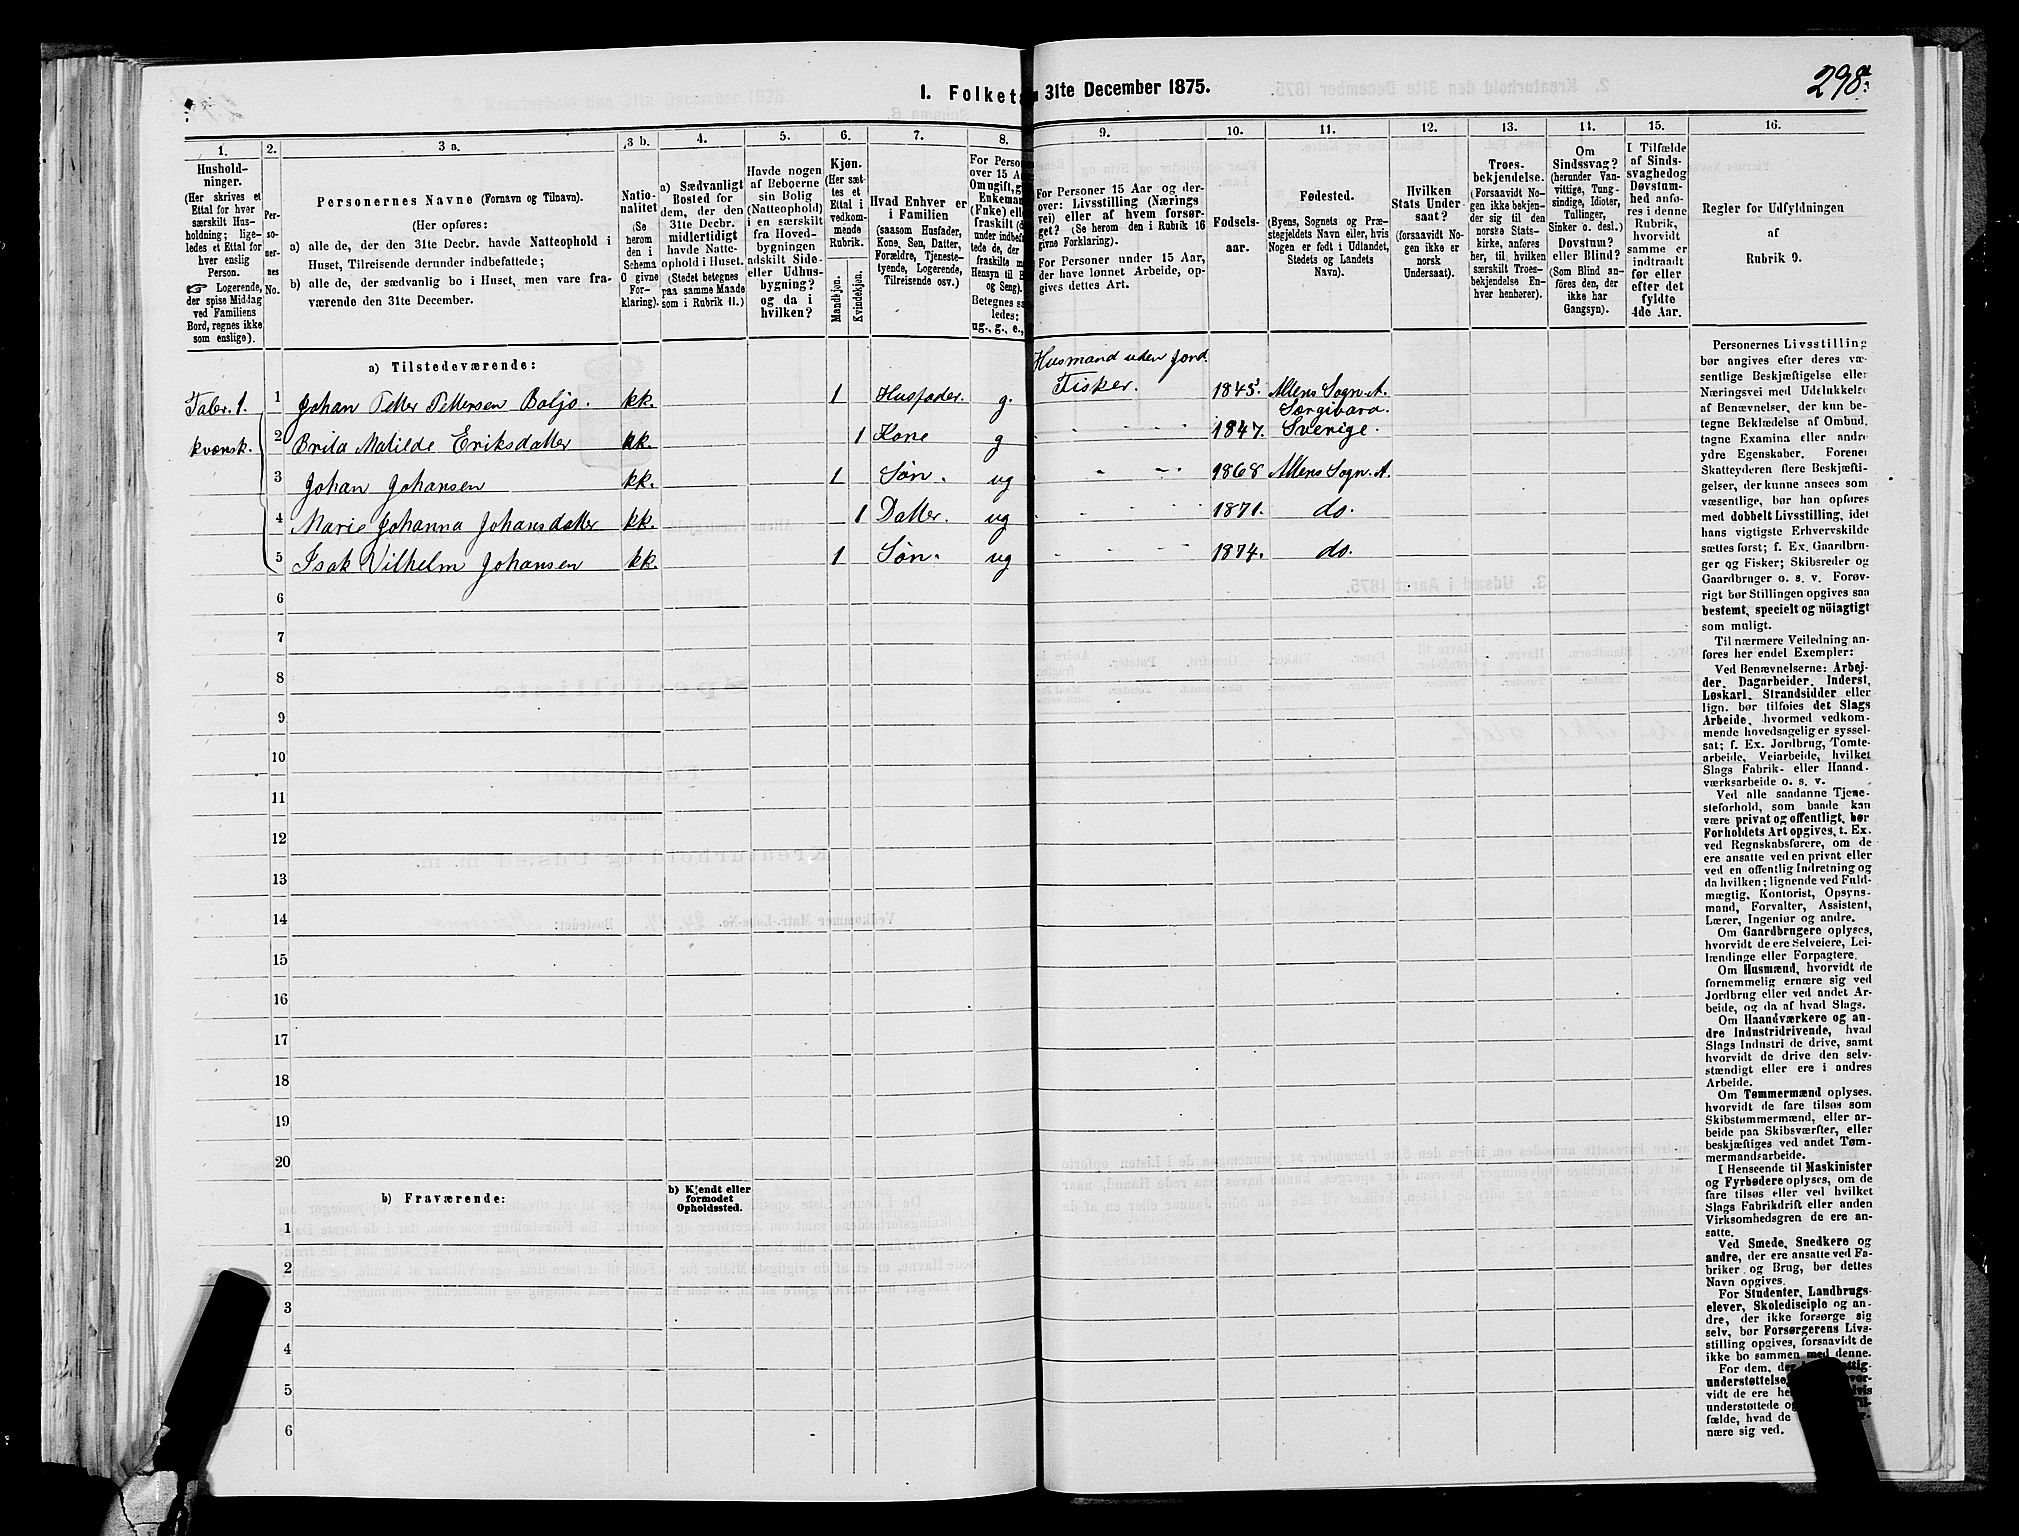 298a.
I. Folketæ 31te December 1875.
1. 2. 3 a. 3 b. 4. 5. 6. 7. 8. 9. 10. 11. 12. 13. 14. 15. 16.
Hushold-
ninger.
(Her skrives et
Ettal for hver
særskilt Hus-
holdning; lige-
ledes et Ettal for
hver enslig
Person.
☞ Logerende,
der spise Middag
ved Familiens
Bord, regnes ikke
som enslige).
Per-
so-
ner-
nes
No.
Personernes Navne (Fornavn og Tilnavn).
(Her opføres:
a) alle de, der den 31te Decbr. havde Natteophold i
Huset, Tilreisende derunder indbefattede;
b) alle de, der sædvanlig bo i Huset, men vare fra-
værende den 31te December.
Natio-
nalitet
(Se
herom
den i
Schema
O givne
For-
klaring).
a) Sædvanligt
Bosted for
dem, der den
31te Decbr.
midlertidigt
havde Natte-
ophold i Huset.
(Stedet betegnes
paa samme Maade
som i Rubrik 11.)
Havde nogen
af Beboerne
sin Bolig
(Natteophold)
i en særskilt
fra Hoved-
bygningen
adskilt Side-
eller Udhus-
bygning?
og da i
hvilken?
Kjøn.
(Her sæt-
tes et
Ettal i
vedkom-
mende
Rubrik.
Mandkjøn.
Kvindekjøn.
Hvad Enhver er
i Familien
(saasom Husfader,
Kone, Søn, Datter,
Forældre, Tjeneste-
tyende, Logerende,
Tilreisende osv.)
For Person
over 15 Aa
Om ugift, g
Enkeman
(Enke) elle
fraskilt (d
under indbe
tede de, der
fraskilte m
Hensyn til B
og Seng).
Betegnes sa
ledes:
ug., g., e.,
For Personer 15 Aar og der-
over: Livsstilling (Nærings
vei) eller af hvem forsør-
get? (Se herom den i Rubrik 16
givne Forklaring).
For Personer under 15 Aar,
der have lønnet Arbeide, op-
gives dettes Art.
Fødsels-
aar.
Fødested.
(Byens, Sognets og Præ-
stegjeldets Navn eller, hvis
Nogen er født i Udlandet,
Stedets og Landets
Navn).
Hvilken
Stats Under
saat?
(forsaavidt No-
gen ikke er
norsk
Undersaat).
Troes-
bekjendelse.
(Forsaavidt No-
gen ikke bekjen-
der sig til den
norske Stats-
kirke, anføres
her, til hvilken
særskilt Troes-
bekjendelse En-
hver henhører).
Om
Sindssvag?
(herunder Van-
vittige, Tung-
sindige, Idioter,
Tullinger,
Sinker o. desl.)
Døvstum?
eller Blind?
(Som Blind an-
føres den, der
ikke har
Gangsyn).
I Tilfælde
af Sinds-
svaghed og
Døvstum-
hed anfø-
res i denne
Rubrik,
hvorvidt
samme er
indtraadt
før eller
efter det
fyldte
4de Aar.
Regler for Udfyldningen
af
Rubrik 9.
a) Tilstedeværende:
Husmand uden Jord.
Taler.1. 1 Johan Petter Pettersen Baljo. kk. 1 Husfader. g. Fisker. 1845. Altens Sogn. A.
Særgivara.
kvænsk. 2 Brita Matilde Eriksdatter kk. 1 Kone g 1847. Sverige.
3 Johan Johansen kk. 1 Søn. ug 1868 Altens Sogn. A.
4 Marie Johanna Johansdatter kk. 1 Datter. ug 1871. do.
5 Isak Vilhelm Johansen kk. 1 Søn. ug 1874. do.
6
7
8
9
10
11
12
13
14
15
16
17
18
19
20
b) Fraværende:
b) Kjendt eller
formodet
Opholdssted.
1
2
3
4
5
6
Personernes Livsstilling
bør angives efter deres væ-
sentlige Beskjæftigelse eller
Næringsvei med Udelukkelse
af Benævnelser, der kun be-
tegne Beklædelse af Ombud,
tagne Examina eller andre
ydre Egenskaber. Forener
Skatteyderen flere Beskjæfti-
gelser, der kunne ansees som
væsentlige, bør han opføres
med dobbelt Livsstilling, idet
hans vigtigste Erhvervskilde
sættes først; f. Ex. Gaardbru-
ger og Fisker; Skibsreder og
Gaardbruger o. s. v. Forøv-
rigt bør Stillingen opgives saa
bestemt, specielt og nöiagtigt
som muligt.
Til nærmere Veiledning an-
føres her endel Exempler:
Ved Benævnelserne: Arbej-
der, Dagarbeider, Inderst,
Løskarl, Strandsidder eller
lign. bør tilføies det Slags
Arbeide, hvormed vedkom-
mende hovedsagelig er syssel-
sat; f. Ex. Jordbrug, Tomte-
arbeide, Veiarbeide, hvilket
Slags Fabrik- eller Haand-
værksarbeide o. s. v.
Ved alle saadanne Tjene-
steforhold, som baade kan
være privat og offentligt, bør
Forholdets Art opgives, t. Ex.
ved Regnskabsførere, om de
ere ansatte ved en privat eller
ved en offentlig Indretning og
da hvilken; lignende ved Fuld-
mægtig, Kontorist, Opsyns-
mand, Forvalter, Assistent,
Lærer, Ingeniør og andre.
Om Gaardbrugere oplyses,
hvorvidt de ere Selveiere, Lei-
lændinge eller Forpagtere.
Om Husmænd, hvorvidt de
fornemmelig ernære sig ved
Jordbrug eller ved andet Ar-
beide, og da af hvad Slags.
Om Haandværkere og an-
dre Industridrivende, hvad
Slags Industri de drive, samt
hvorvidt de drive den selv-
stændigt eller ere i andres
Arbeide.
Om Tømmermænd oplyses,
hvorvidt de fare tilsøs som
Skibstømmermænd, eller ar-
beide paa Skibsværfter, eller
beskjæftiges ved andet Tøm-
mermandsarbeide.
I Henseende til Maskinister
og Fyrbødere oplyses, om de
fare tilsøs eller ved hvilket
Slags Fabrikdrift eller anden
Virksomhedsgren de ere an-
satte.
Ved Smede, Snedkere og
andre, der ere ansatte ved Fa-
briker og Brug, bør dettes
Navn opgives.
For Studenter, Landbrugs-
elever, Skoledisciple og an-
dre, der ikke forsørge sig
selv, bør Forsørgerens Livs-
stilling opgives, forsaavidt de
ikke bo sammen med denne.
For dem, der
understøttelse,
vidt de ere
understøttede
fælde, hvad de
nære sig ved.